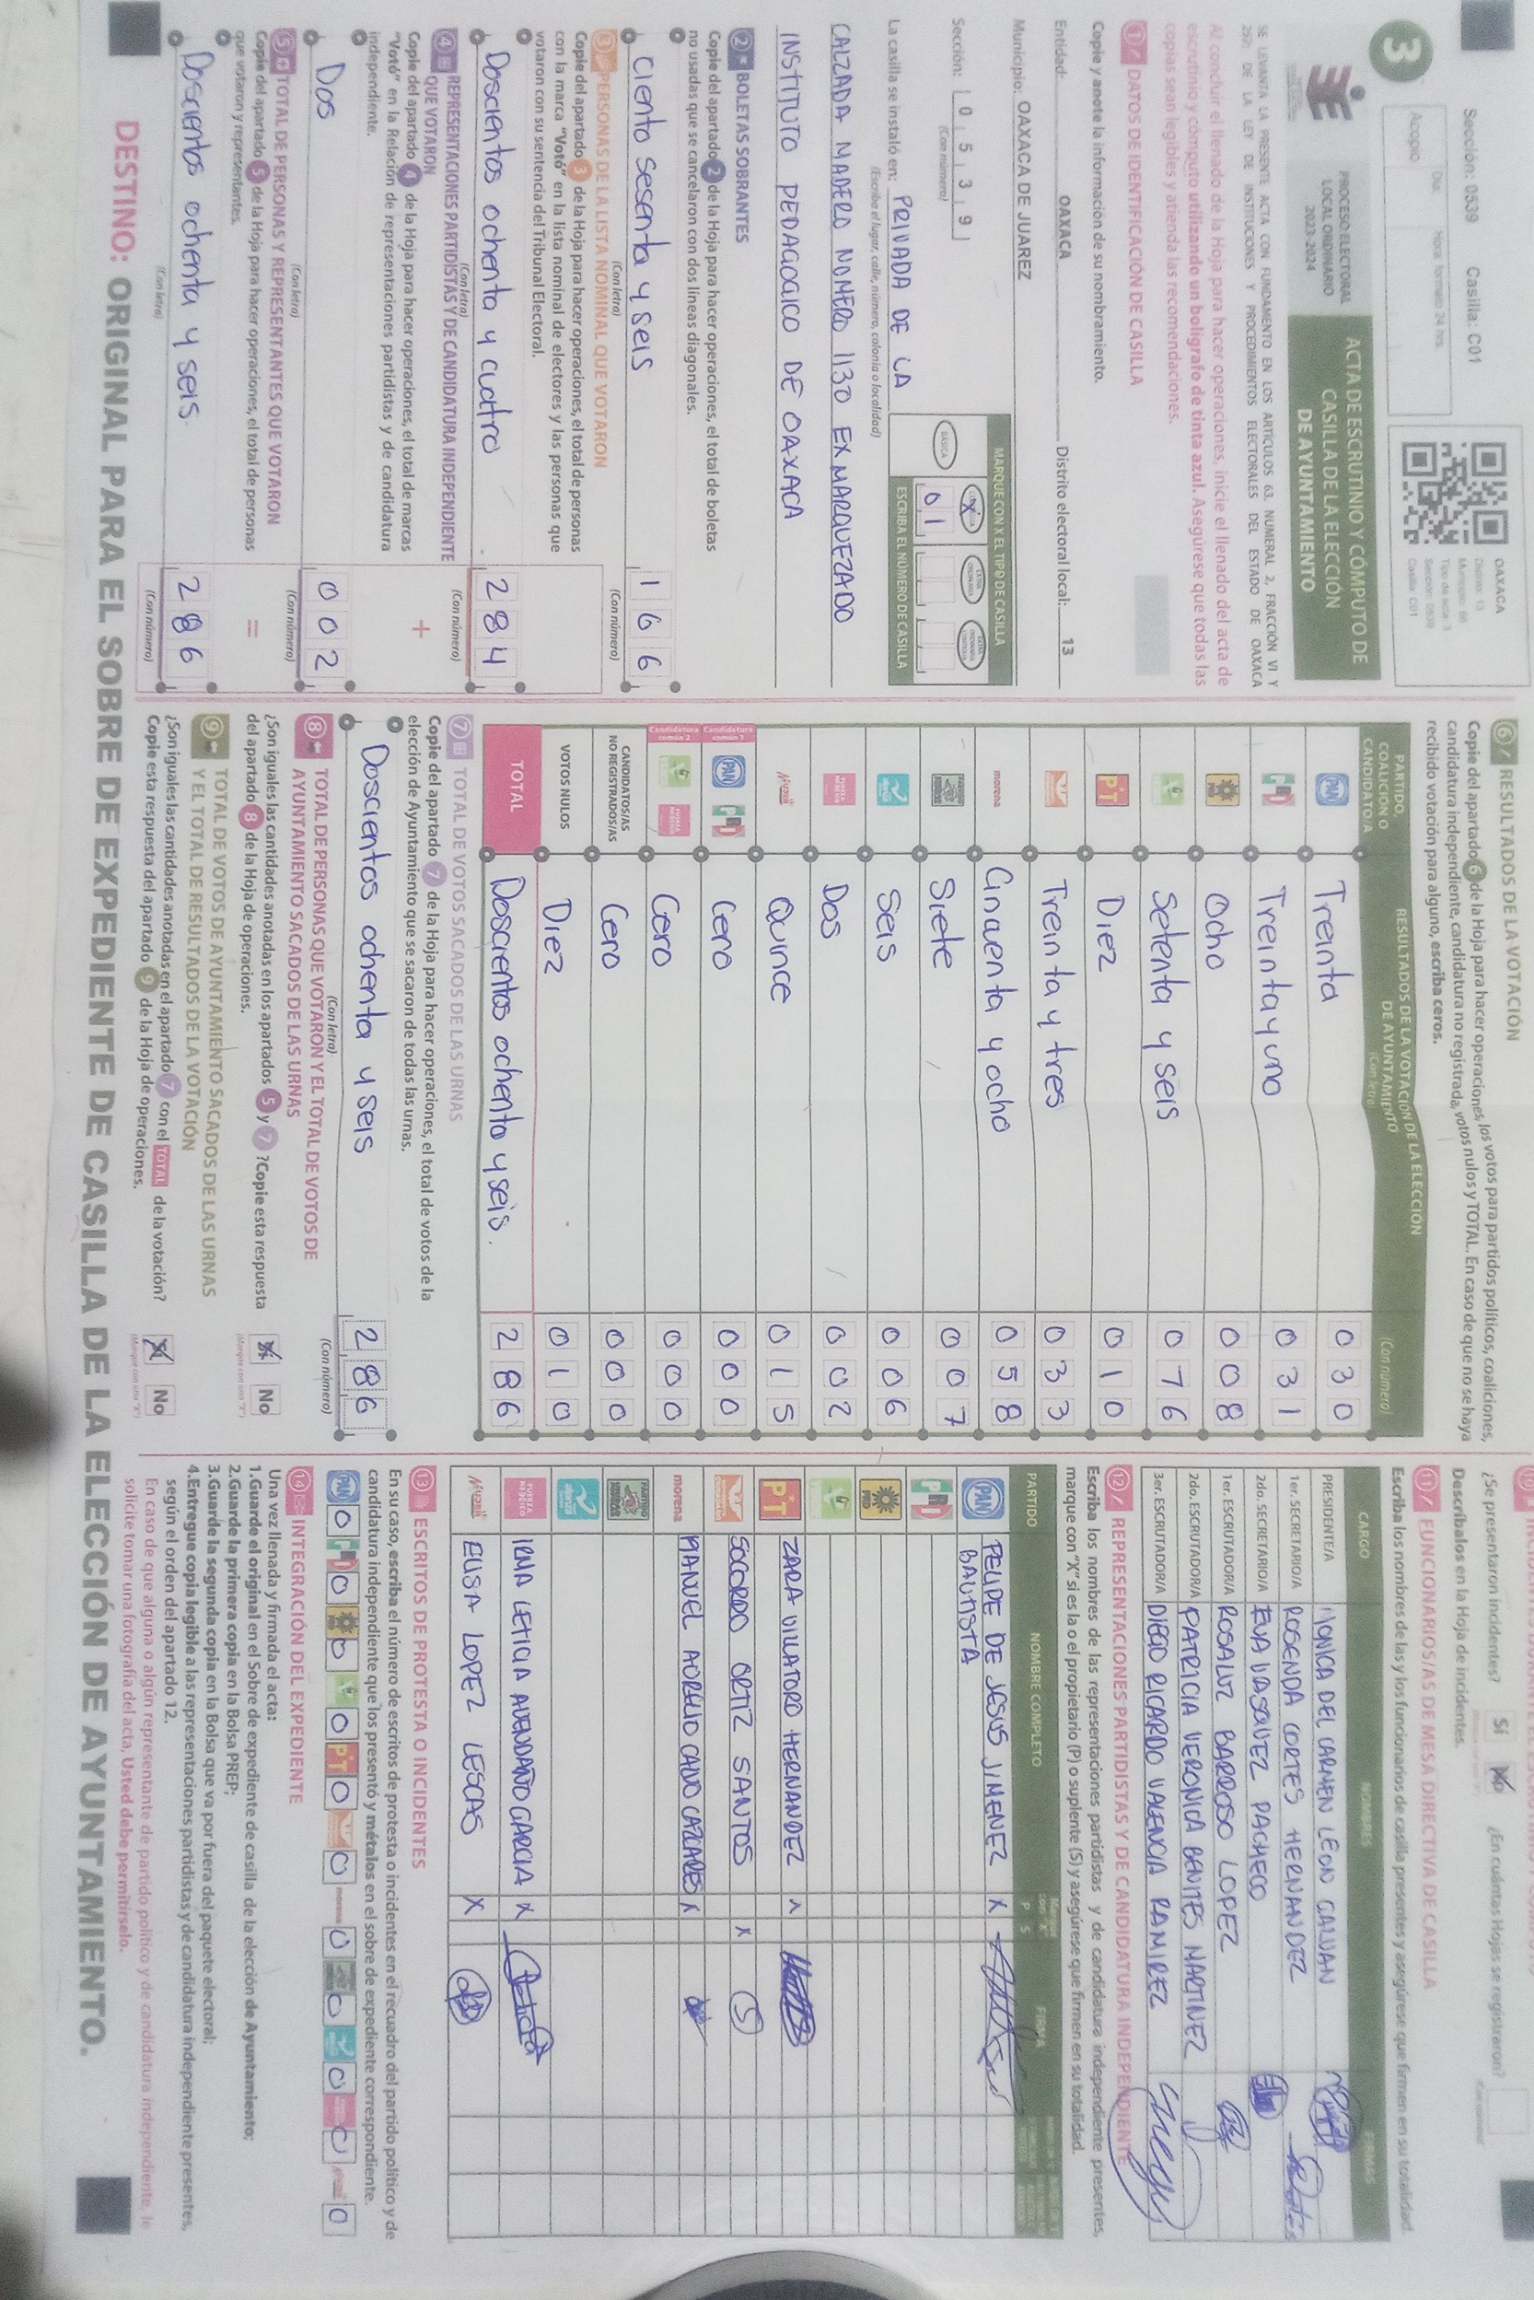 Sección: 0539 Casilla: C01
3
Acopio
Día:
Hora: formato 24 hrs.
OAXACA
Distrito: 13
Tipo de acta: 3
Sección: 0539
Casilla: C01
PROCESO ELECTORAL
LOCAL ORDINARIO
2023-2024
ACTA DE ESCRUTINIO Y CÓMPUTO DE
CASILLA DE LA ELECCIÓN
DE AYUNTAMIENTO
SE LEVANTA LA PRESENTE ACTA CON FUNDAMENTO EN LOS ARTÍCULOS 63, NUMERAL 2, FRACCIÓN VI Y
259; DE LA LEY DE INSTITUCIONES Y PROCEDIMIENTOS ELECTORALES DEL ESTADO DE OAXACA
Al concluir el llenado de la Hoja para hacer operaciones, inicie el llenado del acta de
escrutinio y cómputo utilizando un bolígrafo de tinta azul. Asegúrese que todas las
copias sean legibles y atienda las recomendaciones.
1 DATOS DE IDENTIFICACIÓN DE CASILLA
Copie y anote la información de su nombramiento.
Entidad: OAXACA Distrito electoral local: 13
Municipio: OAXACA DE JUAREZ
Sección: 0 5 3 9
(Con número)
MARQUE CON X EL TIPO DE CASILLA
BÁSICA
X
0 1
ESCRIBA EL NÚMERO DE CASILLA
La casilla se instaló en: PRIVADA DE LA
(Escriba el lugar, calle, número, colonia o localidad)
CALZADA MADERO NÚMERO 1130 EX MARQUEZADO
INSTITUTO PEDAGOGICO DE OAXACA
2 BOLETAS SOBRANTES
Copie del apartado 2 de la Hoja para hacer operaciones, el total de boletas
no usadas que se cancelaron con dos líneas diagonales.
Ciento sesenta y seis 1 6 6
(Con letra) (Con número)
3 PERSONAS DE LA LISTA NOMINAL QUE VOTARON
Copie del apartado 3 de la Hoja para hacer operaciones, el total de personas
con la marca "Votó" en la lista nominal de electores y las personas que
votaron con su sentencia del Tribunal Electoral.
Doscientos ochenta y cuatro 2 8 4
(Con letra) (Con número)
4 REPRESENTACIONES PARTIDISTAS Y DE CANDIDATURA INDEPENDIENTE
QUE VOTARON
Copie del apartado 4 de la Hoja para hacer operaciones, el total de marcas
"Votó" en la Relación de representaciones partidistas y de candidatura
independiente.
+
Dos 0 0 2
(Con letra) (Con número)
5 TOTAL DE PERSONAS Y REPRESENTANTES QUE VOTARON
Copie del apartado 5 de la Hoja para hacer operaciones, el total de personas
que votaron y representantes.
=
Doscientos ochenta y seis 2 8 6
(Con letra) (Con número)
6 RESULTADOS DE LA VOTACIÓN
Copie del apartado 6 de la Hoja para hacer operaciones, los votos para partidos políticos, coaliciones,
candidatura independiente, candidatura no registrada, votos nulos y TOTAL. En caso de que no se haya
recibido votación para alguno, escriba ceros.
PARTIDO,
COALICIÓN O
CANDIDATO/A
RESULTADOS DE LA VOTACIÓN DE LA ELECCIÓN
DE AYUNTAMIENTO
(Con letra)
(Con número)
PAN Treinta 0 3 0
PRI Treinta y uno 0 3 1
PRD Ocho 0 0 8
Setenta y seis 0 7 6
PT Diez 0 1 0
Treinta y tres 0 3 3
morena Cincuenta y ocho 0 5 8
Siete 0 0 7
Seis 0 0 6
Dos 0 0 2
Quince 0 1 5
Candidatura común 1 PAN PRI Cero 0 0 0
Candidatura común 2 Cero 0 0 0
CANDIDATOS/AS
NO REGISTRADOS/AS Cero 0 0 0
VOTOS NULOS Diez 0 1 0
TOTAL Doscientos ochenta y seis. 2 8 6
7 TOTAL DE VOTOS SACADOS DE LAS URNAS
Copie del apartado 7 de la Hoja para hacer operaciones, el total de votos de la
elección de Ayuntamiento que se sacaron de todas las urnas.
Doscientos ochenta y seis 2 8 6
(Con letra) (Con número)
8 TOTAL DE PERSONAS QUE VOTARON Y EL TOTAL DE VOTOS DE
AYUNTAMIENTO SACADOS DE LAS URNAS
¿Son iguales las cantidades anotadas en los apartados 5 y 7 ? Copie esta respuesta
del apartado 8 de la Hoja de operaciones.
Sí No
9 TOTAL DE VOTOS DE AYUNTAMIENTO SACADOS DE LAS URNAS
Y EL TOTAL DE RESULTADOS DE LA VOTACIÓN
¿Son iguales las cantidades anotadas en el apartado 7 con el TOTAL de la votación?
Copie esta respuesta del apartado 9 de la Hoja de operaciones.
Sí No
¿Se presentaron incidentes? Sí No ¿En cuántas Hojas se registraron?
Descríbalos en la Hoja de incidentes.
11 FUNCIONARIOS/AS DE MESA DIRECTIVA DE CASILLA
Escriba los nombres de las y los funcionarios de casilla presentes y asegúrese que firmen en su totalidad.
CARGO NOMBRES FIRMAS
PRESIDENTE/A MONICA DEL CARMEN LEON GALVAN
1er. SECRETARIO/A ROSENDA CORTES HERNANDEZ
2do. SECRETARIO/A EVA VASQUEZ PACHECO
1er. ESCRUTADOR/A ROSALUZ BARROSO LOPEZ
2do. ESCRUTADOR/A PATRICIA VERONICA BENITES MARTINEZ
3er. ESCRUTADOR/A DIEGO RICARDO VALENCIA RAMIREZ
12 REPRESENTACIONES PARTIDISTAS Y DE CANDIDATURA INDEPENDIENTE
Escriba los nombres de las representaciones partidistas y de candidatura independiente presentes,
marque con "X" si es la o el propietario (P) o suplente (S) y asegúrese que firmen en su totalidad.
PARTIDO NOMBRE COMPLETO P S FIRMA
PAN FELIPE DE JESUS JIMENEZ BAUTISTA X
PRI
PRD
PT ZARA VILLATORO HERNANDEZ X
SOCORRO ORTIZ SANTOS X
morena MANUEL AURELIO CALVO CAZCARES X
IRMA LETICIA AVENDAÑO GARCIA X
ELISA LOPEZ LESCAS X
13 ESCRITOS DE PROTESTA O INCIDENTES
En su caso, escriba el número de escritos de protesta o incidentes en el recuadro del partido político y de
candidatura independiente que los presentó y métalos en el sobre de expediente correspondiente.
PAN 0 PRI 0 0 0 PT 0 0 morena 0 0 0 0 0
14 INTEGRACIÓN DEL EXPEDIENTE
Una vez llenada y firmada el acta:
1.Guarde el original en el Sobre de expediente de casilla de la elección de Ayuntamiento;
2.Guarde la primera copia en la Bolsa PREP;
3.Guarde la segunda copia en la Bolsa que va por fuera del paquete electoral;
4.Entregue copia legible a las representaciones partidistas y de candidatura independiente presentes,
según el orden del apartado 12.
En caso de que alguna o algún representante de partido político y de candidatura independiente, le
solicite tomar una fotografía del acta, Usted debe permitírselo.
DESTINO: ORIGINAL PARA EL SOBRE DE EXPEDIENTE DE CASILLA DE LA ELECCIÓN DE AYUNTAMIENTO.